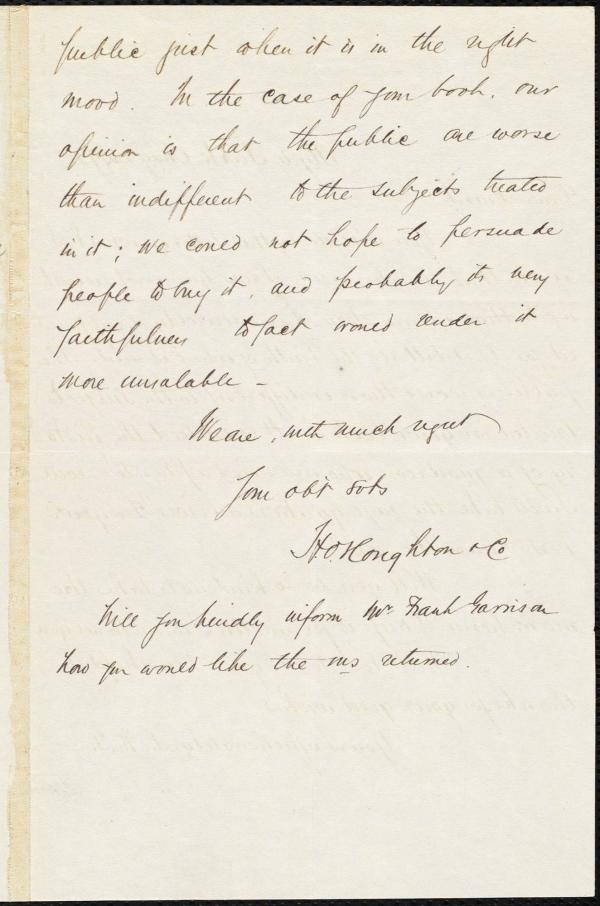 public just when it is in the right
mood. In the case of your book, our
opinion is that the public are worse
than indifferent to the subjects treated
in it; we could not hope to persuade
people to buy it, and probably its very
faithfulness to fact would render it
more unsalable -
We are, with much regret
Your obt svts
H. O. Houghton & Co
Will you kindly inform Mr Frank Garrison
how you would like the ms returned.